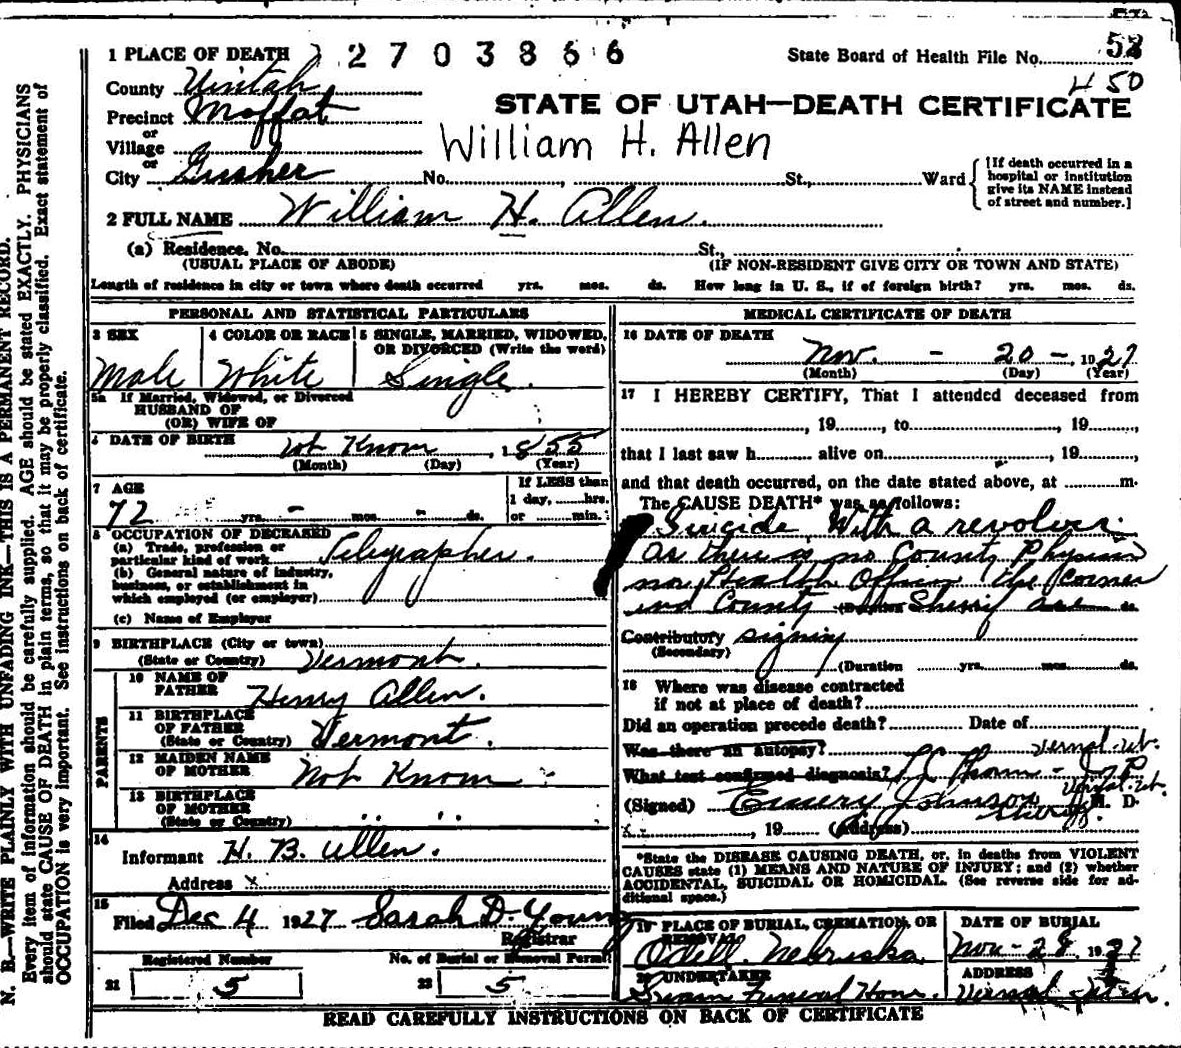 1 PLACE OF DEATH 2703866
State Board of Health File No. 53
450
County Uintah
Precinct Moffat
or
Village
or
City Gusher No. , St., Ward
[If death occurred in a hospital or institution give its NAME instead of street and number.]
STATE OF UTAH—DEATH CERTIFICATE
William H. Allen
2 FULL NAME William H. Allen.
(a) Residence. No. St.,
(USUAL PLACE OF ABODE) (IF NON-RESIDENT GIVE CITY OR TOWN AND STATE)
Length of residence in city or town where death occurred yrs. mos. ds. How long in U. S., if of foreign birth? yrs. mos. ds.
PERSONAL AND STATISTICAL PARTICULARS
3 SEX 4 COLOR OR RACE 5 SINGLE, MARRIED, WIDOWED,
OR DIVORCED (Write the word)
Male White Single.
5a If Married, Widowed, or Divorced
HUSBAND OF
(OR) WIFE OF
6 DATE OF BIRTH not Know, 1855
(Month) (Day) (Year)
7 AGE If LESS than
1 day, hrs.
72 yrs. - mos. - ds. or min.
8 OCCUPATION OF DECEASED
(a) Trade, profession or
particular kind of work Telegrapher.
(b) General nature of industry,
business, or establishment in
which employed (or employer)
(c) Name of Employer
9 BIRTHPLACE (City or town)
(State or Country) Vermont.
PARENTS
10 NAME OF
FATHER Henry Allen.
11 BIRTHPLACE
OF FATHER
(State or Country) Vermont.
12 MAIDEN NAME
OF MOTHER Not Know
13 BIRTHPLACE
OF MOTHER
(State or Country) " "
14
Informant H. B. Allen.
Address x
15
Filed Dec 4 1927 Sarah D. Young
Registrar
Registered Number No. of Burial or Removal Permit
21 5 22 5
MEDICAL CERTIFICATE OF DEATH
16 DATE OF DEATH
Nov. - 20 - 1927
(Month) (Day) (Year)
17 I HEREBY CERTIFY, That I attended deceased from
, 19 , to , 19 ,
that I last saw h alive on , 19 ,
and that death occurred, on the date stated above, at m.
The CAUSE DEATH* was as follows:
Suicide with a revolver.
As there is no County Physician
nor Health Officer the Corner
and County (Duration Sheriff are ds.
Contributory signing
(Secondary)
(Duration yrs. mos. ds.
18 Where was disease contracted
if not at place of death?
Did an operation precede death? Date of
Was there an autopsy? Vernal-Ut.
What test confirmed diagnosis? Thorn - J P
Vernal-Ut.
(Signed) Emery Johnson M. D.
Sheriff.
, 19 (Address)
*State the DISEASE CAUSING DEATH, or, in deaths from VIOLENT
CAUSES state (1) MEANS AND NATURE OF INJURY; and (2) whether
ACCIDENTAL, SUICIDAL OR HOMICIDAL. (See reverse side for ad-
ditional space.)
19 PLACE OF BURIAL, CREMATION, OR
REMOVAL DATE OF BURIAL
Odell. Nebraska. Nov-28 1927
20 UNDERTAKER ADDRESS
Swain Funeral Home. Vernal Utah.
READ CAREFULLY INSTRUCTIONS ON BACK OF CERTIFICATE
N. B.—WRITE PLAINLY WITH UNFADING INK—THIS IS A PERMANENT RECORD.
Every item of information should be carefully supplied. AGE should be stated EXACTLY. PHYSICIANS
should state CAUSE OF DEATH in plain terms, so that it may be properly classified. Exact statement of
OCCUPATION is very important. See instructions on back of certificate.